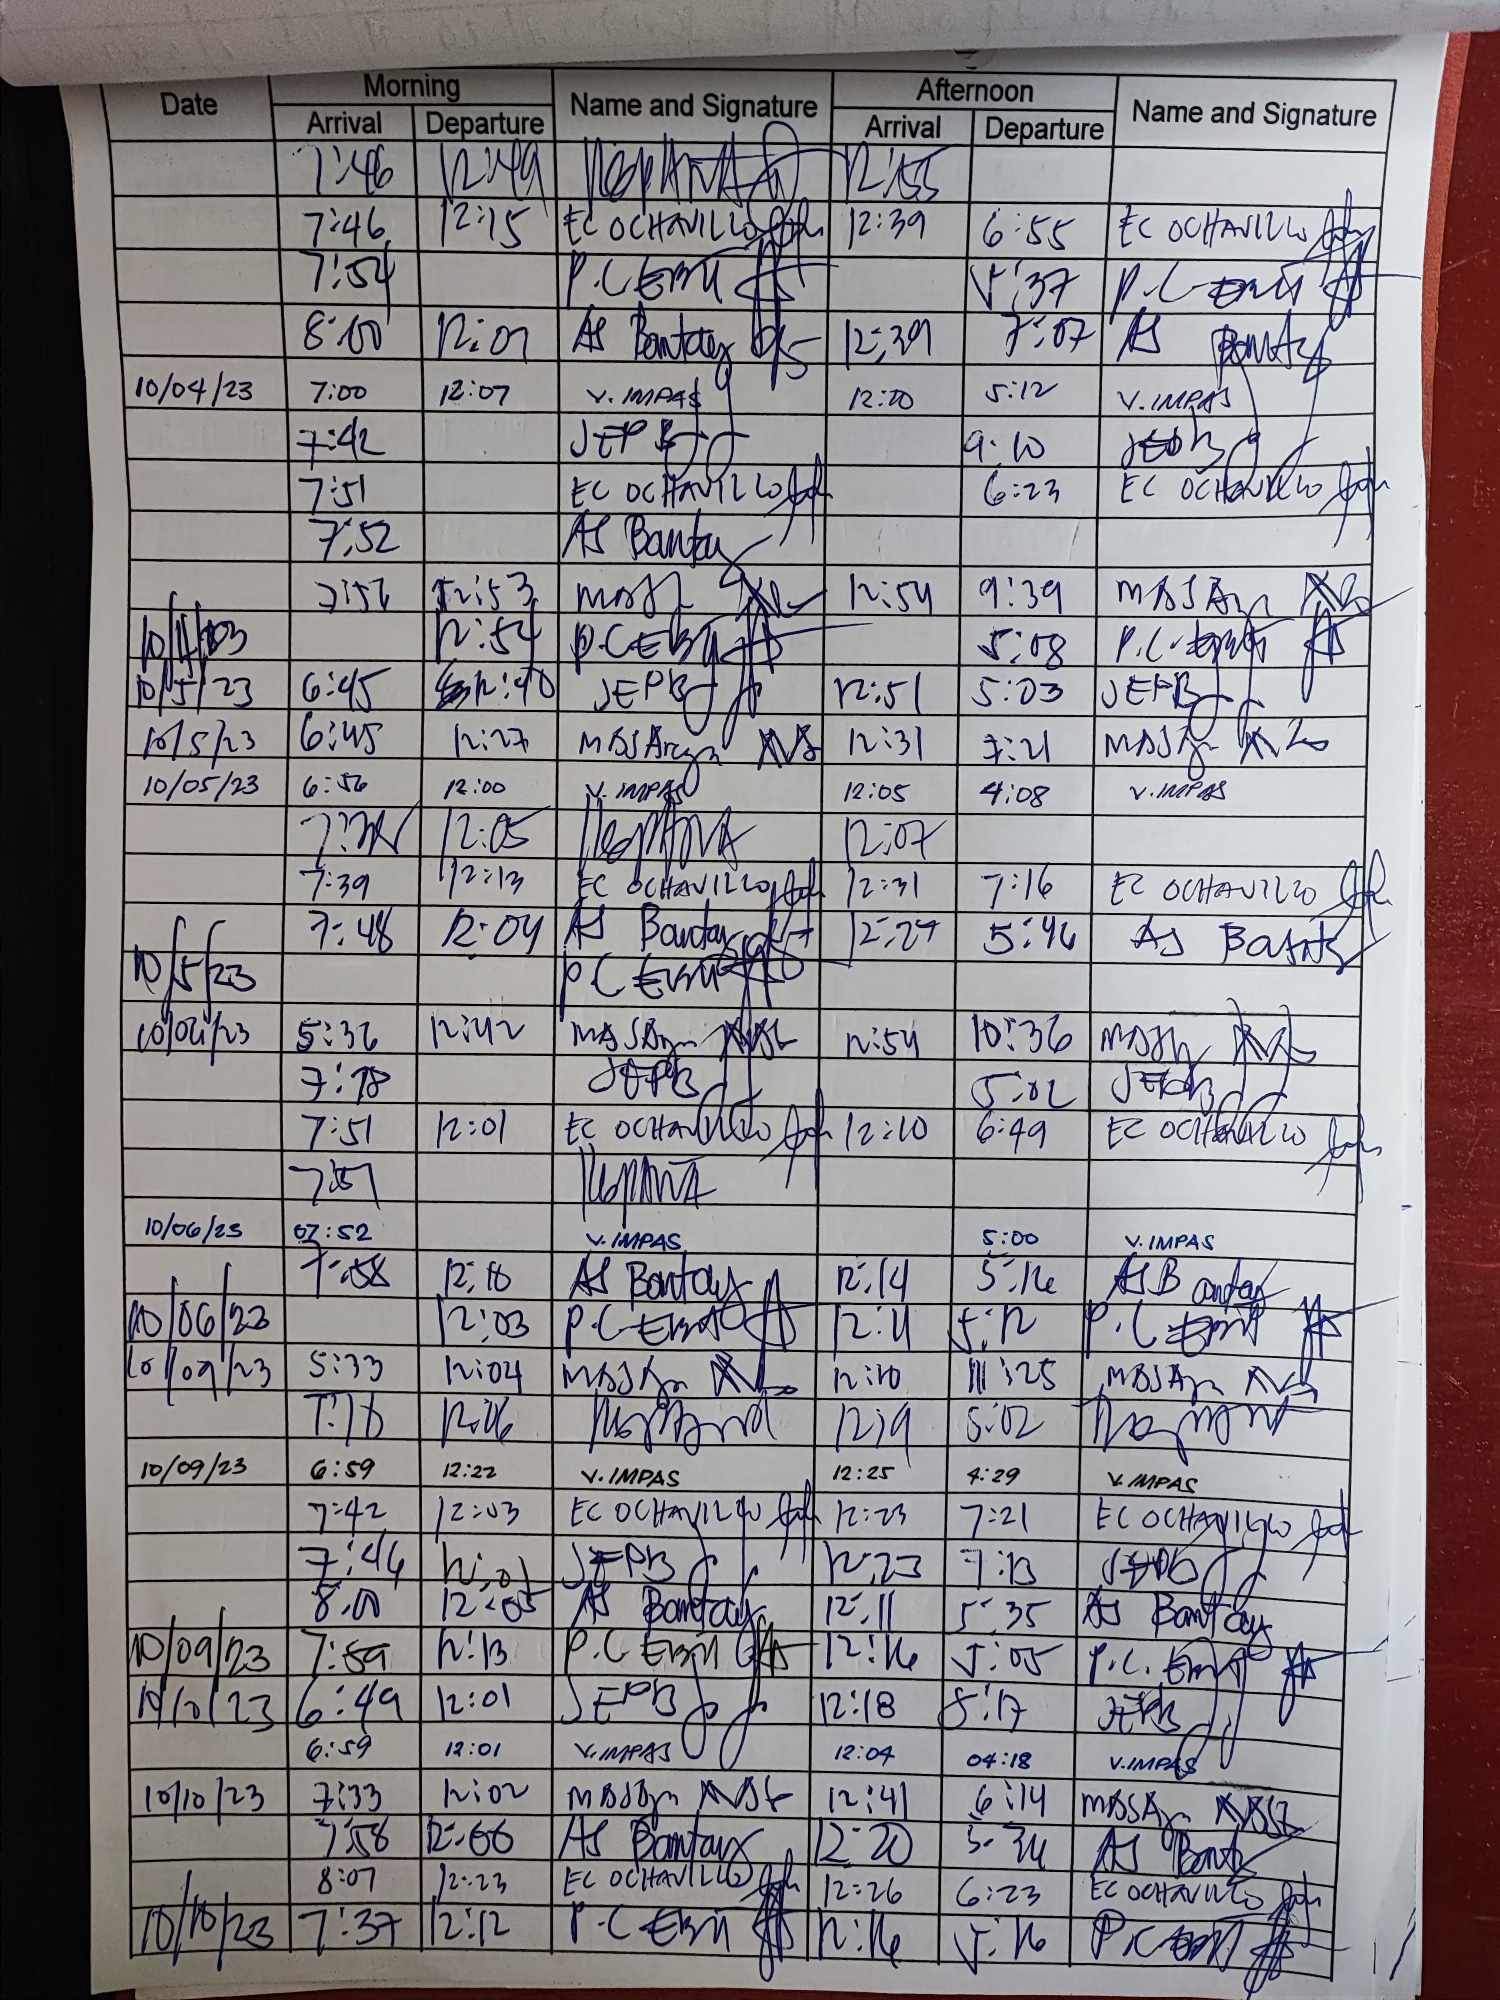 Date Morning Name and Signature Afternoon Name and Signature
Arrival Departure Arrival Departure
7:46 12:49 12:55
7:46 12:15 EC OCHAVILLO 12:39 6:55 EC OCHAVILLO
7:54 P.C EBIT 5:37 P.C EBIT
8:00 12:07 AS Bantay 12:39 7:07 AS Bantay
10/04/23 7:00 12:07 V. IMPAS 12:10 5:12 V. IMPAS
7:42 JEPB 9:10 JEPB
7:51 EC OCHAVILLO 6:23 EC OCHAVILLO
7:52 AS Bantay
12:53 12:54 9:39
12:54 P.C EBIT 5:08 P.C EBIT
10/5/23 6:45 12:40 JEPB 12:51 5:03 JEPB
10/5/23 6:45 12:27 12:31 7:21
10/05/23 6:56 12:00 V. IMPAS 12:05 4:08 V. IMPAS
12:05 12:07
7:39 12:13 EC OCHAVILLO 12:31 7:16 EC OCHAVILLO
7:48 12:04 AS Bantay 12:27 5:46 AS Bantay
10/5/23 P.C EBIT
10/06/23 5:36 12:42 12:54 10:36
7:18 JEPB 5:02 JEPB
7:51 12:01 EC OCHAVILLO 12:10 6:49 EC OCHAVILLO
7:57
10/06/23 07:52 V. IMPAS 5:00 V. IMPAS
7:58 12:10 AS Bantay 12:14 5:16 AS Bantay
10/06/23 12:03 P.C EBIT 12:11 5:12 P.C EBIT
10/09/23 5:33 12:04 12:10 11:25
12:06 12:19 5:02
10/09/23 6:59 12:22 V. IMPAS 12:25 4:29 V. IMPAS
7:42 12:03 EC OCHAVILLO 12:23 7:21 EC OCHAVILLO
7:46 12:01 JEPB 12:23 7:13 JEPB
8:00 12:05 AS Bantay 12:11 5:35 AS Bantay
10/09/23 7:59 12:13 P.C EBIT 12:16 5:05 P.C. EBIT
10/10/23 6:49 12:01 JEPB 12:18 8:17 JEPB
6:59 12:01 V. IMPAS 12:04 04:18 V. IMPAS
10/10/23 7:33 12:02 12:41 6:14
7:58 12:06 AS Bantay 12:20 5:34 AS Bantay
8:07 12:23 EC OCHAVILLO 12:26 6:23 EC OCHAVILLO
10/10/23 7:37 12:12 P.C EBIT 12:16 5:16 P.C EBIT